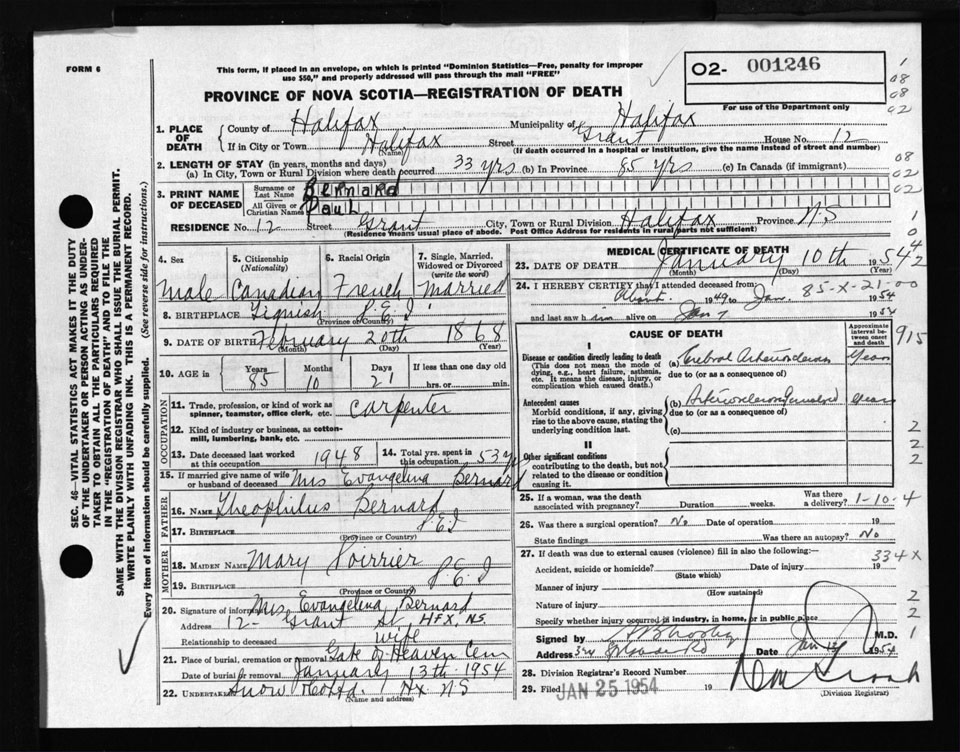 FORM 6
This form, if placed in an envelope, on which is printed "Dominion Statistics—Free, penalty for improper
use $50," and properly addressed will pass through the mail "FREE"
O2- 001246
For use of the Department only
PROVINCE OF NOVA SCOTIA—REGISTRATION OF DEATH
1. PLACE OF DEATH
County of Halifax Municipality of Halifax
If in City or Town Halifax Street Grant House No. 12
(Name) (If death occurred in a hospital or institution, give the name instead of street and number)
2. LENGTH OF STAY (in years, months and days)
(a) In City, Town or Rural Division where death occurred 33 yrs (b) In Province 85 yrs (c) In Canada (if immigrant)
3. PRINT NAME OF DECEASED
Surname or Last Name Bernard
All Given or Christian Names Paul
RESIDENCE No. 12 Street Grant City, Town or Rural Division Halifax Province NS
(Residence means usual place of abode. Post Office Address for residents in rural parts not sufficient)
4. Sex
Male
5. Citizenship (Nationality)
Canadian
6. Racial Origin
French
7. Single, Married, Widowed or Divorced (write the word)
Married
8. BIRTHPLACE Tignish P.E.I
(Province or Country)
9. DATE OF BIRTH February 20th 1868
(Month) (Day) (Year)
10. AGE in
Years Months Days If less than one day old
85 10 21 hrs. or min.
OCCUPATION
11. Trade, profession, or kind of work as spinner, teamster, office clerk, etc. Carpenter
12. Kind of industry or business, as cotton-mill, lumbering, bank, etc.
13. Date deceased last worked at this occupation 1948
14. Total yrs. spent in this occupation 53 yrs
15. If married give name of wife or husband of deceased Mrs Evangelina Bernard
FATHER
16. Name Theophilus Bernard
17. Birthplace P.E.I
(Province or Country)
MOTHER
18. MAIDEN NAME Mary Poirrier
19. BIRTHPLACE P.E.I
(Province or Country)
20. Signature of informant Mrs Evangelina Bernard
Address 12- Grant St, HFX, NS.
Relationship to deceased wife
21. Place of burial, cremation or removal Gate of Heaven Cem
Date of burial or removal January 13th 1954
22. UNDERTAKER Snow & Co Ltd. Hx NS
(Name and address)
MEDICAL CERTIFICATE OF DEATH
23. DATE OF DEATH January 10th 1954
(Month) (Day) (Year)
24. I HEREBY CERTIFY that I attended deceased from:
About 1949 to Jan. 1954
85-X-21-00
and last saw him alive on Jan 7 1954
CAUSE OF DEATH
Approximate interval between onset and death
I
Disease or condition directly leading to death
(This does not mean the mode of dying, e.g., heart failure, asthenia, etc. It means the disease, injury, or complication which caused death.)
(a) Cerebral Arteriosclerosis Years
due to (or as a consequence of)
Antecedent causes
Morbid conditions, if any, giving rise to the above cause, stating the underlying condition last.
(b) Arteriosclerosis Years
due to (or as a consequence of)
(c)
II
Other significant conditions
contributing to the death, but not related to the disease or condition causing it.
25. If a woman, was the death associated with pregnancy? Weeks duration Was there a delivery? 1-10-4
26. Was there a surgical operation? No Date of operation 19
State findings Was there an autopsy? No
27. If death was due to external causes (violence) fill in also the following:—
334X
Accident, suicide or homicide? Date of injury 19
(State which)
Manner of injury
(How sustained)
Nature of injury
Specify whether injury occurred in industry, in home, or in public place
Signed by M.D.
Address Date Jan 1954
28. Division Registrar's Record Number
29. Filed JAN 25 1954 19
(Division Registrar)
1
08
08
02
08
02
02
1
0
42
915
2
2
2
2
2
1
SEC. 46—VITAL STATISTICS ACT MAKES IT THE DUTY
OF THE UNDERTAKER OR PERSON ACTING AS UNDER-
TAKER TO OBTAIN ALL THE PARTICULARS REQUIRED
IN THE "REGISTRATION OF DEATH" AND TO FILE THE
SAME WITH THE DIVISION REGISTRAR WHO SHALL ISSUE THE BURIAL PERMIT.
WRITE PLAINLY WITH UNFADING INK. THIS IS A PERMANENT RECORD.
Every item of information should be carefully supplied. (See reverse side for instructions.)